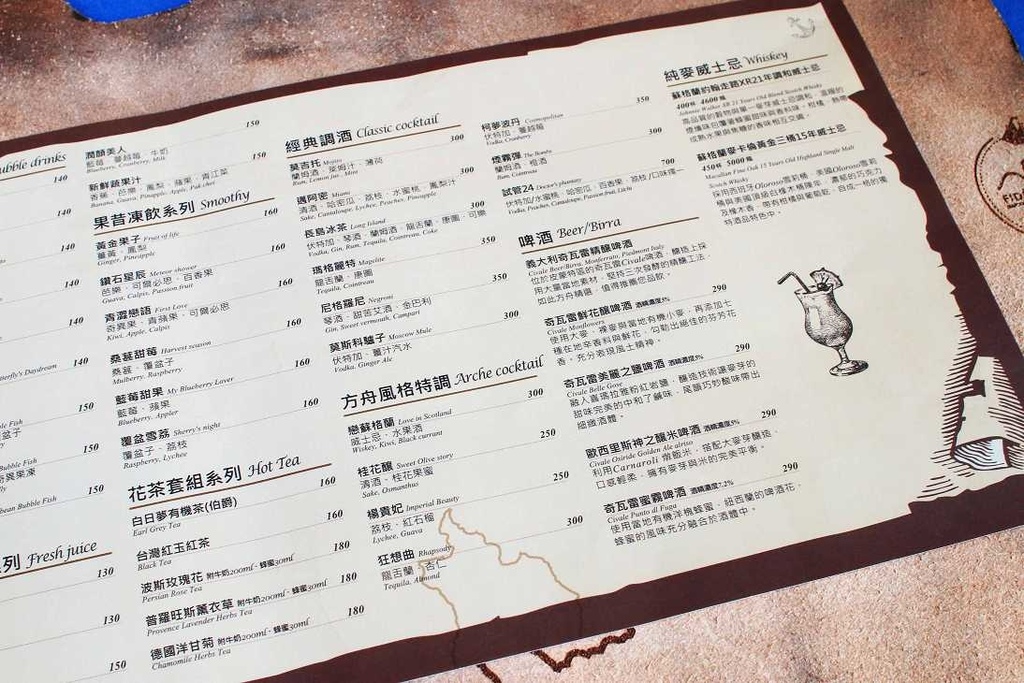 ubble drinks
140
140
140
140
erfly's Daydream
140
150
Bubble Fish
150
Bubble Fish
150
bean Bubble Fish
列 Fresh juice
130
130
150
潤顏美人 150
藍莓、蔓越莓、牛奶
Blueberry, Cranberry, Milk
新鮮蔬果汁 150
香蕉、芭樂、鳳梨、蘋果、青江菜
Banana, Guava, Pineapple, Apple, Pak choi
果昔凍飲系列 Smoothy
黃金果子 Fruit of life 160
薑黃、鳳梨
Ginger, Pineapple
鑽石星辰 Meteor shower 160
芭樂、可爾必思、百香果
Guava, Calpis, Passion fruit
青澀戀語 First Love 160
奇異果、青蘋果、可爾必思
Kiwi, Apple, Calpis
桑葚甜莓 Harvest season 160
桑葚、覆盆子
Mulberry, Raspberry
藍莓甜果 My Blueberry Lover 160
藍莓、蘋果
Blueberry, Appler
覆盆雪荔 Sherry's night 160
覆盆子、荔枝
Raspberry, Lychee
花茶套組系列 Hot Tea
白日夢有機茶(伯爵) 160
Earl Grey Tea
台灣紅玉紅茶 160
Black Tea
波斯玫瑰花 附牛奶200ml、蜂蜜30ml 180
Persian Rose Tea
普羅旺斯薰衣草 附牛奶200ml、蜂蜜30ml 180
Provence Lavender Herbs Tea
德國洋甘菊 附牛奶200ml、蜂蜜30ml 180
Chamomile Herbs Tea
經典調酒 Classic cocktail
莫吉托 Mojito 300
蘭姆酒、萊姆汁、薄荷
Rum, Lemon Jui, Mint
邁阿密 Miami 300
清酒、哈密瓜、荔枝、水蜜桃、鳳梨汁
Sake, Cantaloupe, Lychee, Peaches, Pineapple
長島冰茶 Long Island 350
伏特加、琴酒、蘭姆酒、龍舌蘭、康圖、可樂
Vodka, Gin, Rum, Tequila, Cointreau, Coke
瑪格麗特 Magolite 350
龍舌蘭、康圖
Tequila, Cointreau
尼格羅尼 Negroni 350
琴酒、甜苦艾酒、金巴利
Gin, Sweet vermouth, Campari
莫斯科驢子 Moscow Mule 300
伏特加、薑汁汽水
Vodka, Ginger Ale
方舟風格特調 Arche cocktail
戀蘇格蘭 Love in Scotland 300
威士忌、水果酒
Whiskey, Kiwi, Black currant
桂花釀 Sweet Olive story 250
清酒、桂花果蜜
Sake, Osmanthus
楊貴妃 Imperial Beauty 250
荔枝、紅石榴
Lychee, Guava
狂想曲 Rhapsody 300
龍舌蘭、杏仁
Tequila, Almond
柯夢波丹 Cosmopolitan 350
伏特加、蔓越莓
Vodka, Cranberry
煙霧彈 The Bomb 300
蘭姆酒、橙酒
Rum, Cointreau
試管24 Doctor's phantasy 700
伏特加/水蜜桃、哈密瓜、百香果、荔枝/口味擇一
Vodka, Peaches, Cantaloupe, Passion fruit, Litchi
啤酒 Beer/Birra
義大利奇瓦雷精釀啤酒
Civale Beer/Birra, Monferrato, Piedmont Italy
位於皮蒙特區的奇瓦雷Civale啤酒，釀造上採
用大量當地素材，堅持三次發酵的精釀工法，
如此方舟精選，值得推薦您品飲。
奇瓦雷鮮花釀啤酒 酒精濃度5% 290
Civale Monflowers
使用大麥、裸麥與當地有機小麥，再添加七
種在地辛香料與鮮花，勾勒出絕佳的芬芳花
香，充分表現風土精神。
奇瓦雷美麗之鹽啤酒 酒精濃度5% 290
Civale Belle Gose
融入喜瑪拉雅粉紅岩鹽，釀造技術讓麥芽的
甜味完美的中和了鹹味，尾韻巧妙酸味帶出
細緻酒體。
歐西里斯神之釀米啤酒 酒精濃度5% 290
Civale Osiride Golden Ale alriso
利用Carnaroli 燉飯米，搭配大麥芽釀造，
口感輕柔，擁有麥芽與米的完美平衡。
奇瓦雷蜜霧啤酒 酒精濃度7.2% 290
Civale Punto di Fuga
使用當地有機洋槐蜂蜜，紐西蘭的啤酒花，
蜂蜜的風味充分融合於酒體中。
純麥威士忌 Whiskey
蘇格蘭約翰走路XR21年調和威士忌
400杯 4600瓶
Johnnie Walker XR 21 Years Old Blend Scotch Whisky
高品質的穀物與單一麥芽威士忌調和，溫醇的
煙燻味
蘇格蘭麥卡倫黃金三桶15年威士忌
450杯 5000瓶
Macallan Fine Oak 15 Years Old Highland Single Malt
Scotch Whisky
採用西班牙Oloroso雪莉桶、美國Oloroso雪莉
桶與美國頂級包橡木桶陳年